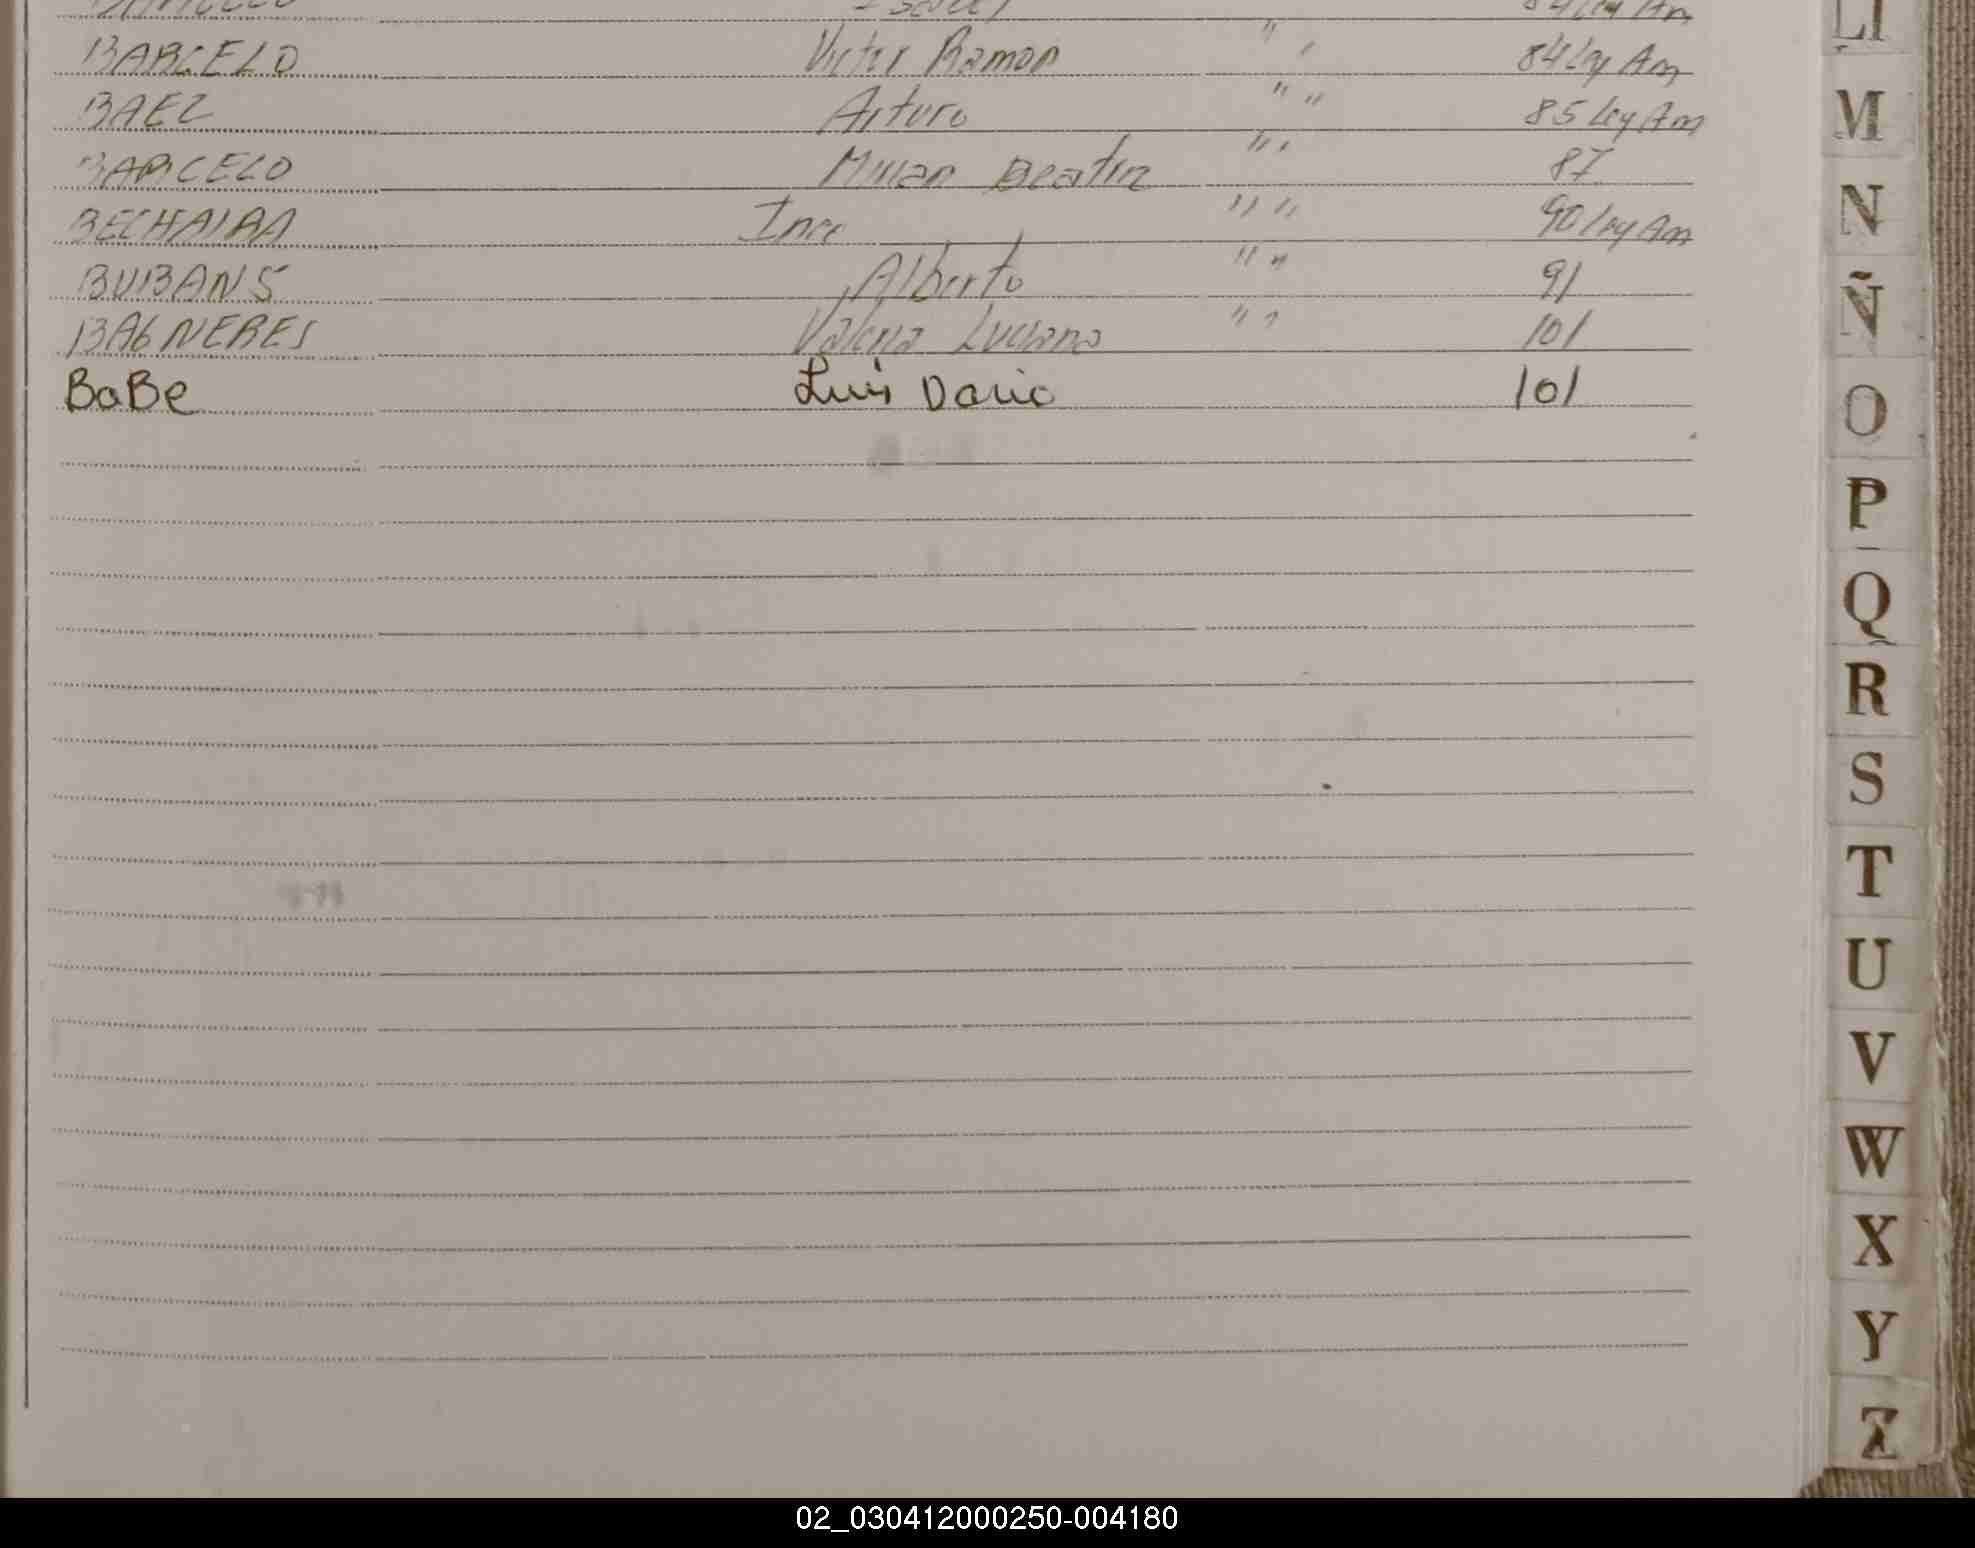 BARCELO Victor Ramon " " 84 Ley Am
BAEZ Arturo " " 85 Ley Am
BARCELO Mirian Beatriz " " 87
BECHAIRA Ince " " 90 Ley Am
BURBANS Alberto " " 91
BAGNERES Valeria Luciana " " 101
BaBe Luis Dario 101
Ll
M
N
Ñ
O
P
Q
R
S
T
U
V
W
X
Y
Z
02_030412000250-004180